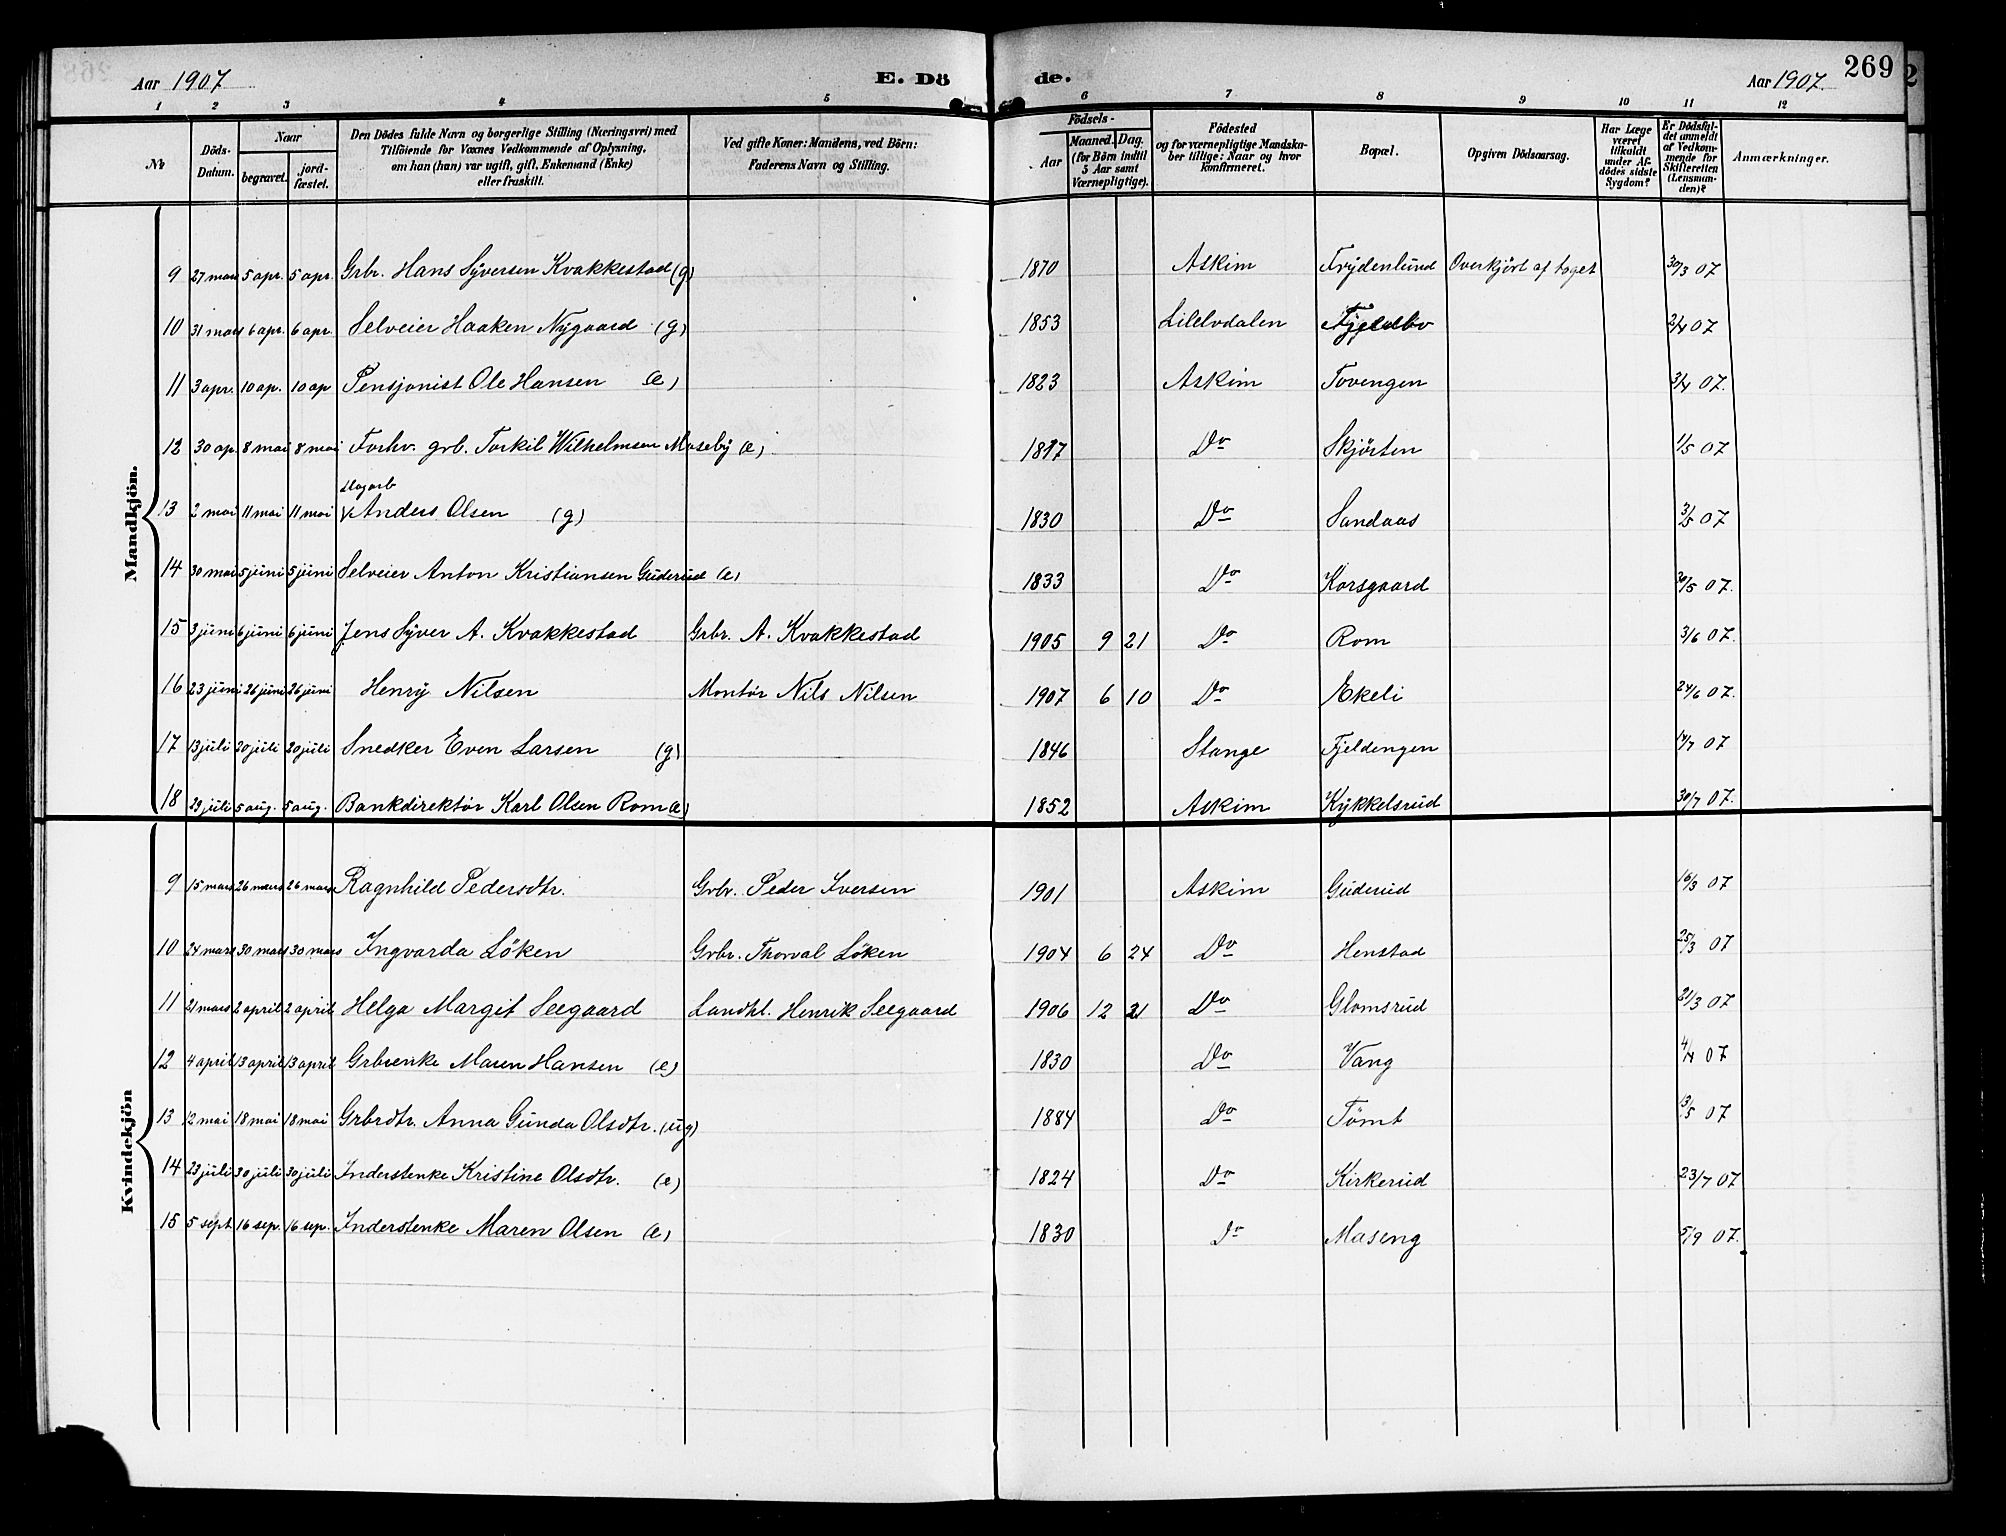 269
Aar 1907 E. Dö de. Aar 1907.
1 2 3 4 5 6 7 8 9 10 11 12
No
Döds-Datum.
Naar
begravet.
jord-fæstet.
Den Dödes fulde Navn og borgerlige Stilling (Næringsvei) med
Tilföiende for Voxnes Vedkommende af Oplysning,
om han (hun) var ugift, gift, Enkemand (Enke)
eller fraskilt.
Ved gifte Koner: Mandens, ved Börn:
Faderens Navn og Stilling.
Födsels-
Aar
Maaned. Dag.
(for Börn indtil
5 Aar samt
Værnepligtige).
Födested
og for værnepligtige Mandska-
ber tillige: Naar og hvor
konfirmeret.
Bopæl.
Opgiven Dödsaarsag.
Har Læge
været
tilkaldt
under Af-
dödes sidste
Sygdom?
Er Dödsfal-
det anmeldt
af Vedkom-
mende for
Skifteretten
(Lensman-
den)?
Anmærkninger.
Mandkjön.
9 27 mars 5 apr. 5 apr. Grbr. Hans Syversen Kvakkestad (g) 1870 Askim Frydenlund Overkjört af toget 30/3 07
10 31 mars 6 apr. 6 apr. Selveier Haaken Nygaard (g) 1853 Lilelvdalen 2/4 07
11 3 apr. 10 ap. 10 ap Pensjonist Ole Hansen (e) 1823 Askim Tovengen 3/4 07.
12 30 ap. 8 mai 8 mai Forhv. grb. Torkil Wilhelmsen Moseby (e) 1817 Do Skjörten 1/5 07
Dagarb
13 2 mai 11 mai 11 mai Anders Olsen (g) 1830 Do Sandaas 3/5 07
14 30 mai 5 juni 5 juni Selveier Anton Kristiansen Guderud (e) 1833 Do Korsgaard 30/5 07.
15 3 juni 6 juni 6 juni Jens Syver A. Kvakkestad Grbr. A. Kvakkestad 1905 9 21 Do Rom 3/6 07.
16 23 juni 26 juni 26 juni Henry Nilsen Montör Nils Nilsen 1907 6 10 Do Ekeli 24/6 07.
17 13 juli 20 juli 20 juli Snedker Even Larsen (g) 1846 Stange Fjeldengen 14/7 07
18 29 juli 5 aug. 5 aug. Bankdirektör Karl Olsen Rom (e) 1852 Askim Kykkelsrud 30/7 07.
Kvindekjön
9 15 mars 26 mars 26 mars Ragnhild Pedersdtr. Grbr. Peder Iversen 1901 Askim Guderud 16/3 07
10 24 mars 30 mars 30 mars Ingvarda Löken Grbr. Thorval Löken 1904 6 24 Do Henstad 25/3 07
11 21 mars 2 april 2 april Helga Margit Seegaard Landhl. Henrik Seegaard 1906 12 21 Do Glomsrud 21/3 07
12 4 april 13 april 13 april Grbrenke Maren Hansen (e) 1830 Do Vang 4/4 07
13 12 mai 18 mai 18 mai Grbrdtr. Anna Gunda Olsdtr. (ug) 1884 Do Tömt 13/5 07
14 23 juli 30 juli 30 juli Inderstenke Kristine Olsdtr. (e) 1824 Do Kirkerud 23/7 07
15 5 sept 16 sep. 16 sep. Inderstenke Maren Olsen (e) 1830 Do Maseng 5/9 07.